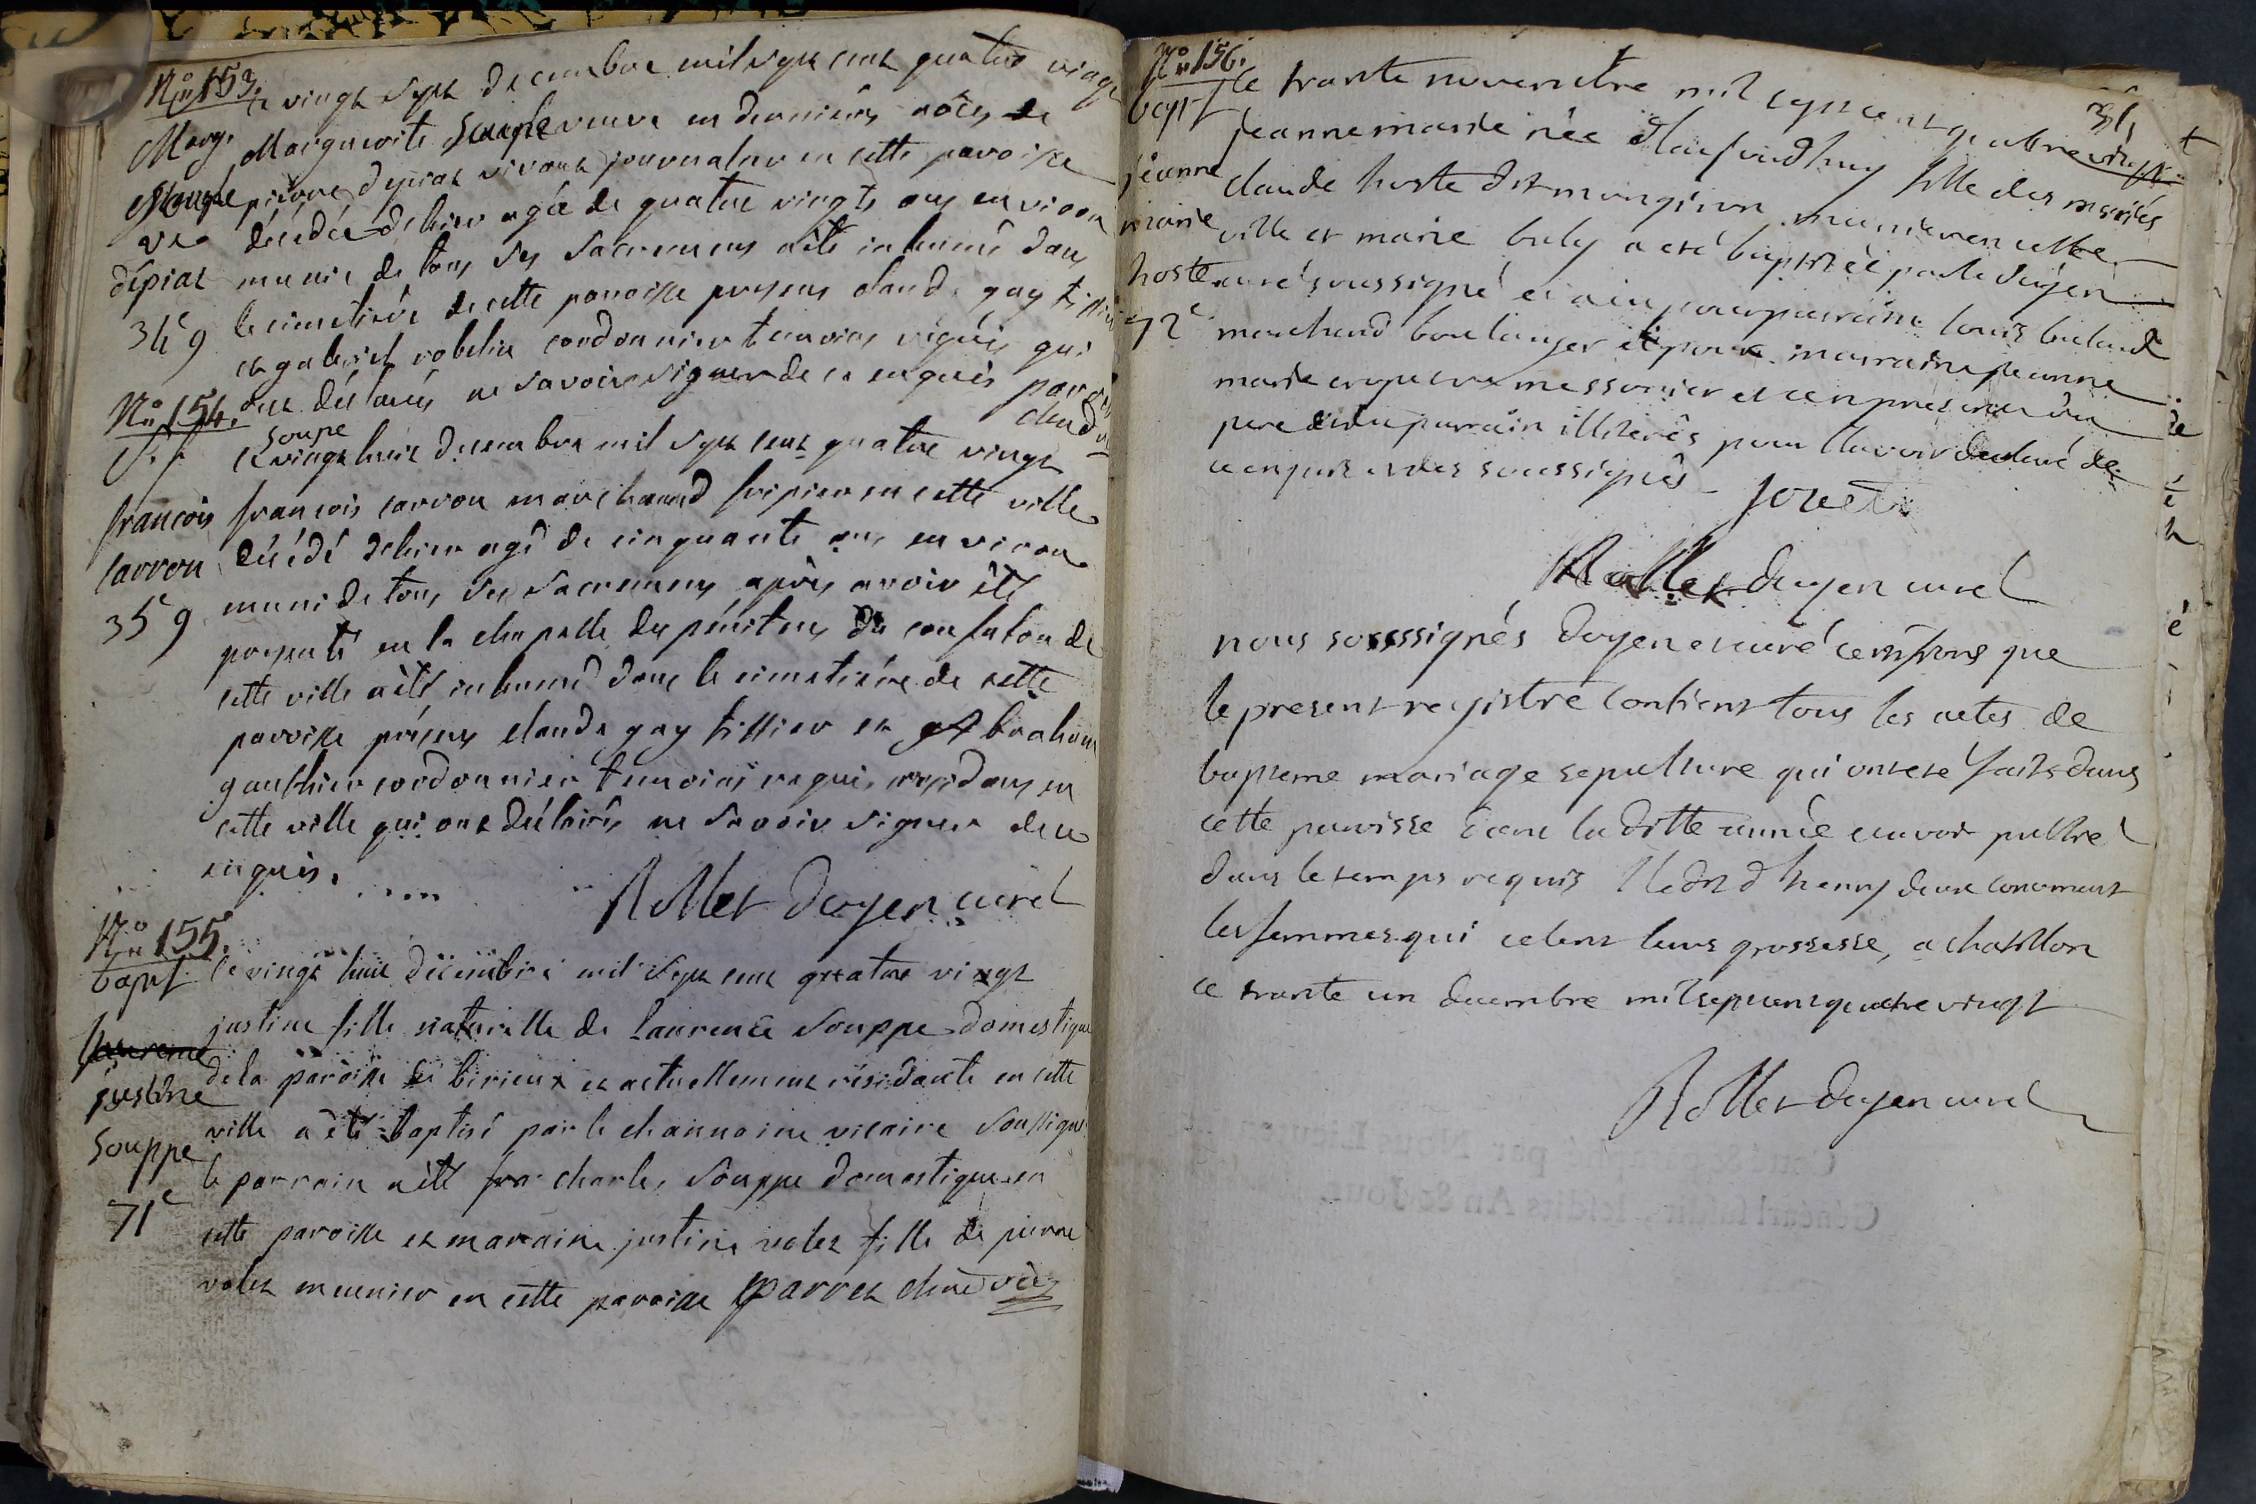 N° 153.
le vingt sept decembre mil sept cent quatre vingt
Marg. Marguerite Souple veuve en dernieres nôces de
Souple pierre depiat vivant journalier en cette paroisse
ve décédée d'hier agée de quatre vingts ans environ
dépiat munie de tous ses sacremens a été inhumé dans
34e 9 le cimetiére de cette paroisse presens claude gay tissier
et gabriel robelin cordonnier temoins requis qui
ont déclarés ne savoir signer de ce enquis parret
chan vic
N° 154.
soupe
S. f. le vingt huit decembre mil sept cent quatre vingt
francois françois carron marchand fripier en cette ville
carron décédé d'hier agé de cinquante ans environ
35e 9 muni de tous ses sacremens après avoir été
presenté en la chapelle des pénitens du confalon de
cette ville a été inhumé dans le cimetiére de cette
paroisse présens claude gay tissier et abraham
gauthier cordonnier temoins requis residans en
cette ville qui ont déclarés ne savoir signer de ce
enquis.
Rollet doyen curé
N° 155.
bapt le vingt huit décembre mil sept cent quatre vingt
justine fille naturelle de laurence Souppe domestique
laurence
justine de la paroisse de birieux et actuellement résidante en cette
ville a été baptisé par le channoine vicaire soussigné
Souppe le parrain a été charles Souppe domestique en
71e cette paroisse et maraine justine volet fille de pierre
volet meunier en cette paroisse parret chan vic
N° 156.
31,
bapt le trante novembre mil sept cent quatre vingt
jeanne marie née d'laujourd'huy fille des mariés
jeanne claude hoste dit mungiron meunier en cette
marie ville et marie buly a été baptisée par le doyen
hoste curé soussigné et a eu pour parrain louis buland
72e marchand boulanger et pour marraine jeanne
marie messonier et ce en presence du
pere et du parrain illiterés pour l'avoir declaré de
ce enquis et des soussignés
jouet
Rollet doyen curé
nous sousssignés doyen et curé certifions que
le present registre contient tous les actes de
bapteme mariage sepulture qui ont eté faits dans
cette paroisse dans la ditte année avoir publié
dans le temps requis l'edit d'henry deux concernant
les femmes qui celent leurs grossesse, a chatillon
ce trante un decembre mil sept cent quatre vingt
Rollet doyen curé